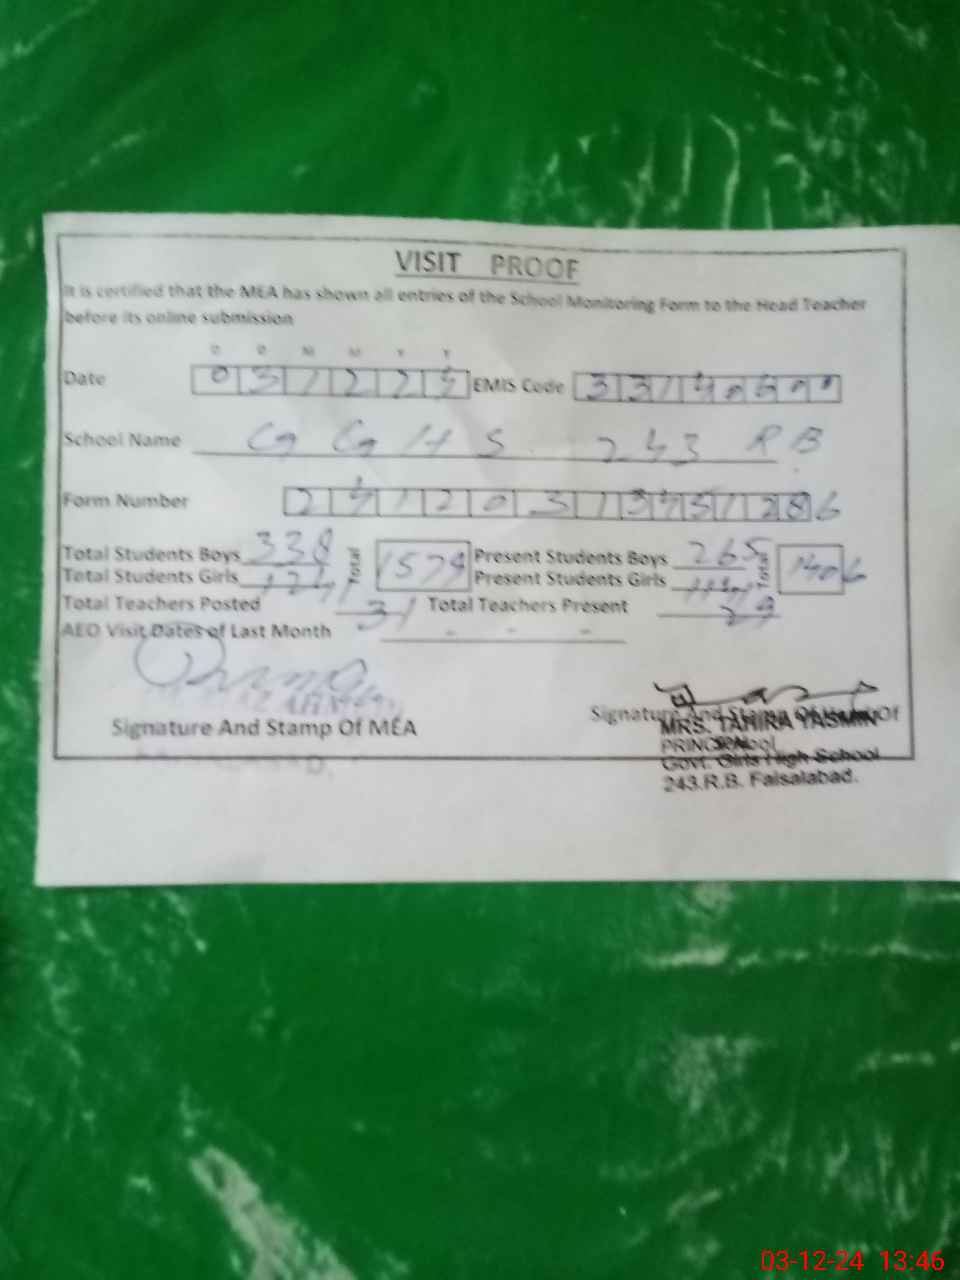 VISIT PROOF
It is certified that the MEA has shown all entries of the School Monitoring Form to the Head Teacher
before its online submission
D D M M Y Y
Date 031224 EMIS Code
School Name GGHS 243 RB
Form Number
Total Students Boys 338 Total 1579 Present Students Boys 265 Total 1406
Total Students Girls 1241 Present Students Girls 1141
Total Teachers Posted 31 Total Teachers Present 29
AEO Visit Dates of Last Month - - -
Signature And Stamp Of MEA
Signature And Stamp Of Of
MRS. TAHIRA YASMIN
PRINCIPAL
Govt. Girls High School
243.R.B. Faisalabad.
03-12-24 13:46